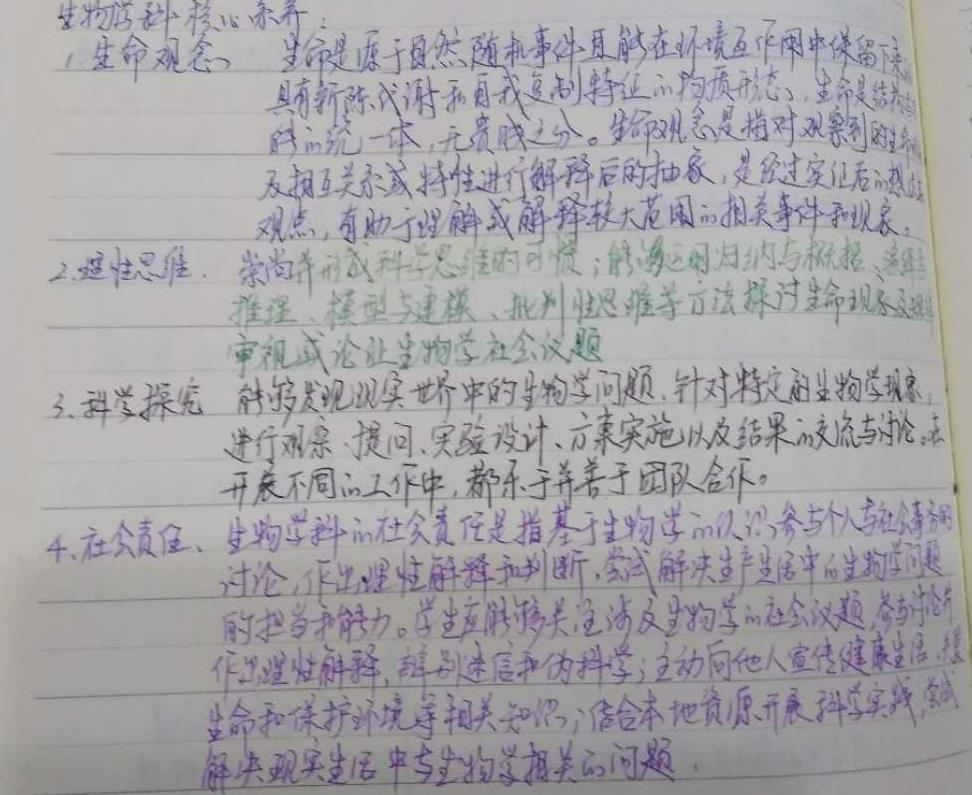 生物学科核心素养:
1.生命观念、 生命是源于自然随机事件且能在环境互作用中保留下来
具有新陈代谢和自我复制特征的物质形态、生命是结构与
能的统一体,无贵贱之分。生命观念是指对观察到的生命
及相互关系或特性进行解释后的抽象,是经过实证后的想法
观点,有助于理解或解释较大范围的相关事件和现象。
2.理性思维. 崇尚并形成科学思维的习惯;能够运用归纳与概括、演绎与
推理、模型与建模、批判性思维等方法探讨生命现象及规律
审视或论证生物学社会议题
3、科学探究 能够发现现实世界中的生物学问题,针对特定的生物学现象,
进行观察、提问、实验设计、方案实施以及结果的交流与讨论。在
开展不同的工作中,都乐于并善于团队合作。
4、社会责任、 生物学科的社会责任是指基于生物学的认识,参与个人与社会事务的
讨论,作出理性解释和判断,尝试解决生产生活中的生物学问题
的担当和能力。学生应能够关注涉及生物学的社会议题,参与讨论并
作出理性解释,辨别迷信和伪科学;主动向他人宣传健康生活、
生命和保护环境等相关知识;结合本地资源开展科学实践,尝试
解决现实生活中与生物学相关的问题.